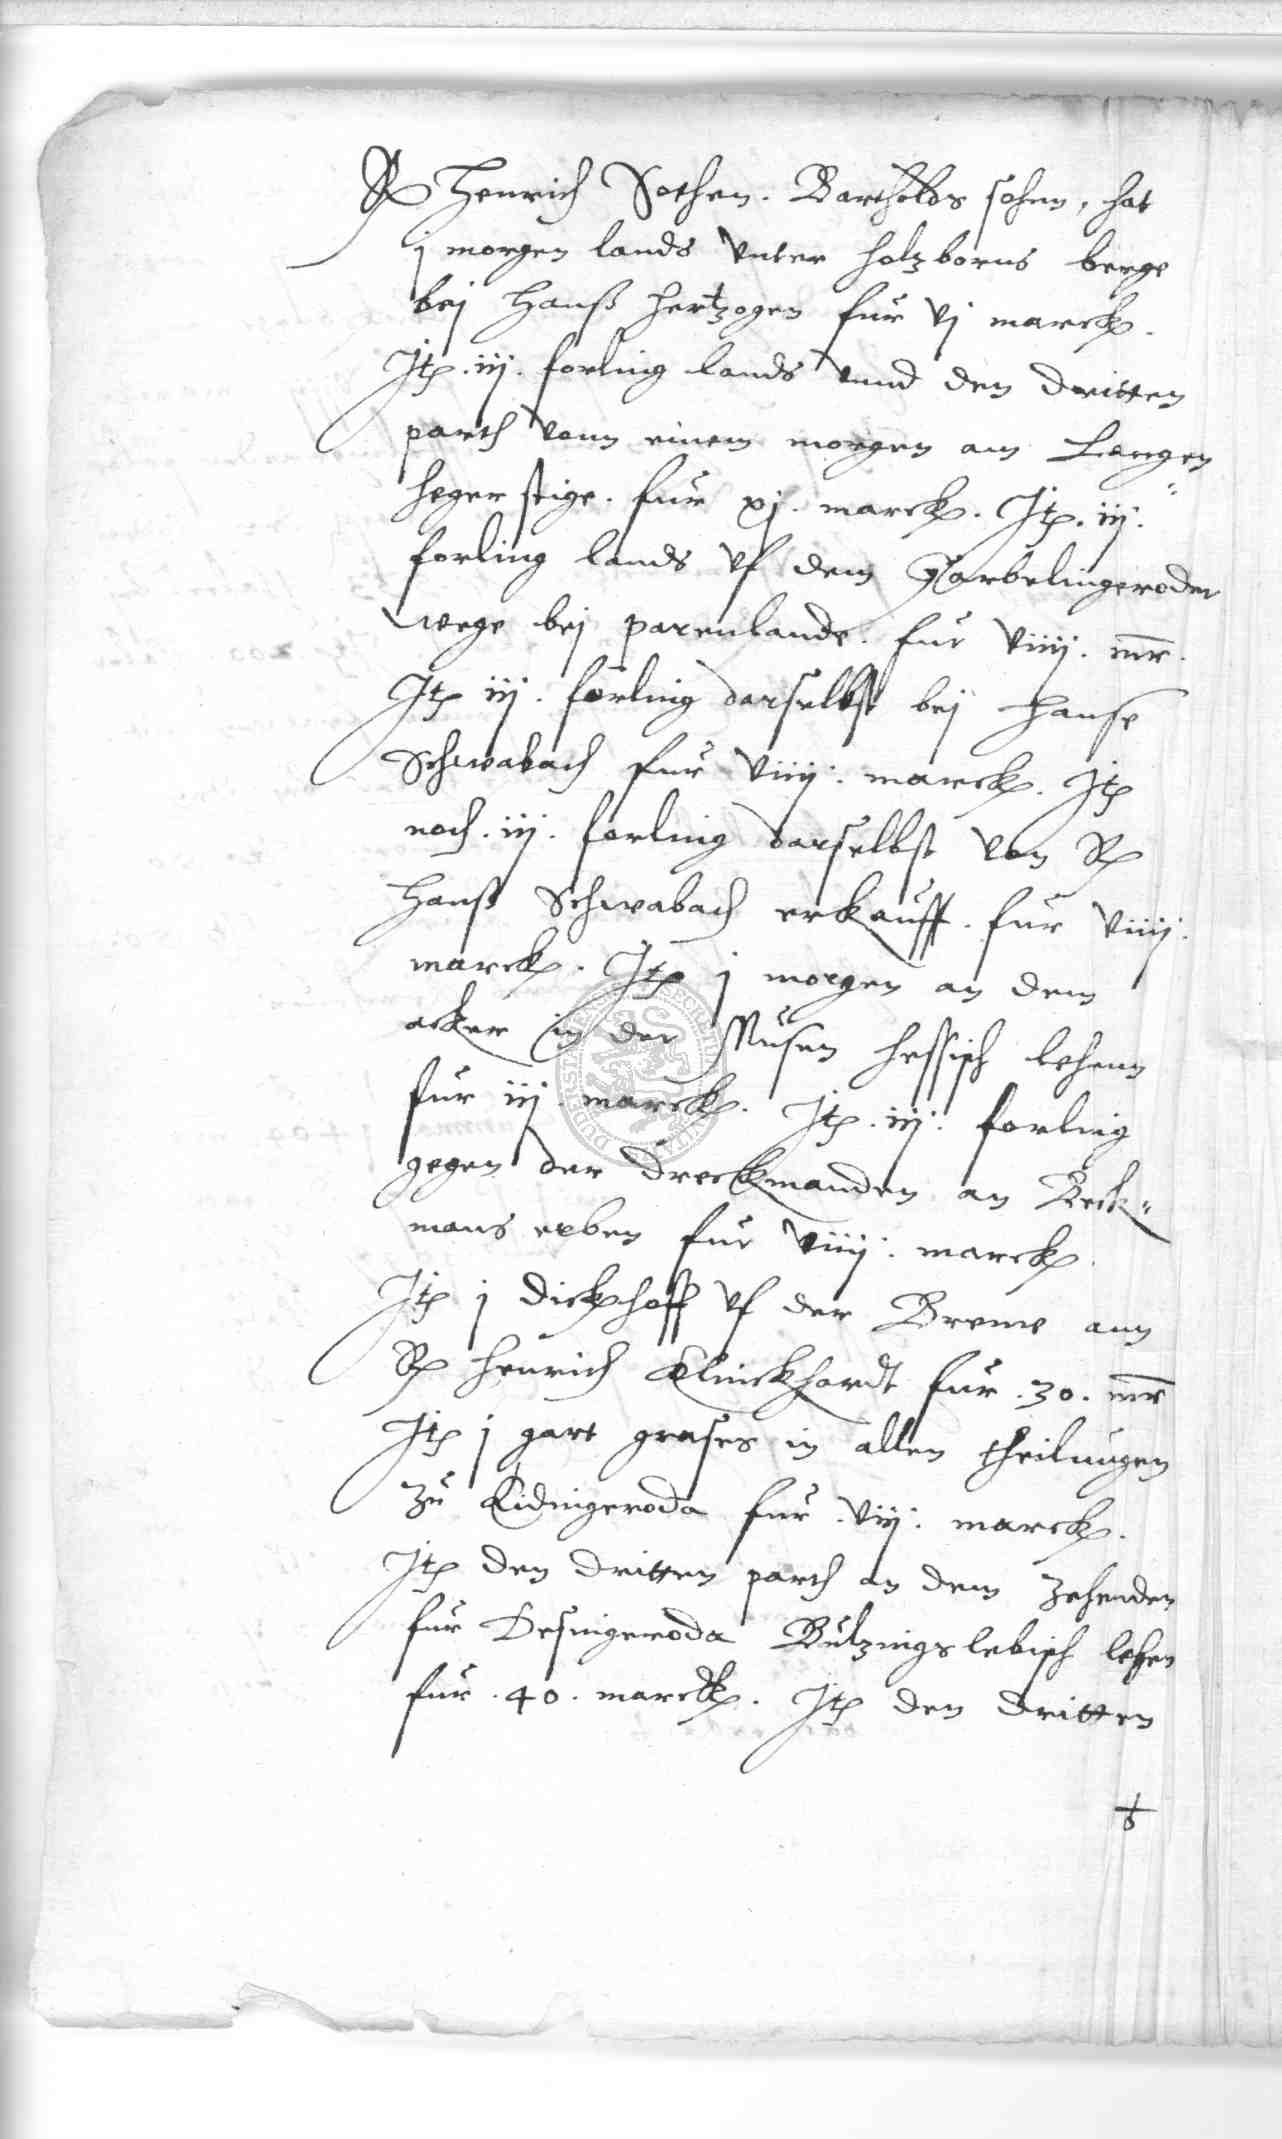 H Henrich Sothen. Bartholds sohen, hat
j morgen lands vnter holzborns berge
bej Hanß hertzogen fur vj marck.
Jtem .iij. forling lands vnnd den dritten
parth vonn einem morgen am Langen
heger stige. fur xj. marck. Jtem .iij.
forling lands vf dem Garbelingeroder
wege bej parenlande. fur viiij. mr.
Jtem iij. forling darselbst bej Hanse
Schwabach fur viiij. marck. Jtem
noch .iij. forling darselbst von H
Hanß Schwabach erkaufft. fur viiij.
marck. Jtem j morgen an dem
acker in der Nusen hessisch lehenn
fur iij. marck. Jtem .iij. forling
gegen der dreckmanden an Beck-
mans erben fur viiij. marck.
Jtem j dickhoff vf der Breme ann
H Henrich Klinckhardt fur .30. mr
Jtem j gart grases in allen theilungen
zu Tidingeroda fur .viij. marck.
Jtem den dritten parth an dem Zehenden
fur Desingeroda Bultzingslebisch lehen
fur .40. marck. Jtem den dritten
SECRETUM
DUDERSTA